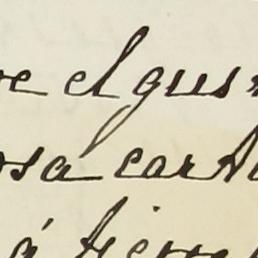 el gus
osa cart
á tierr